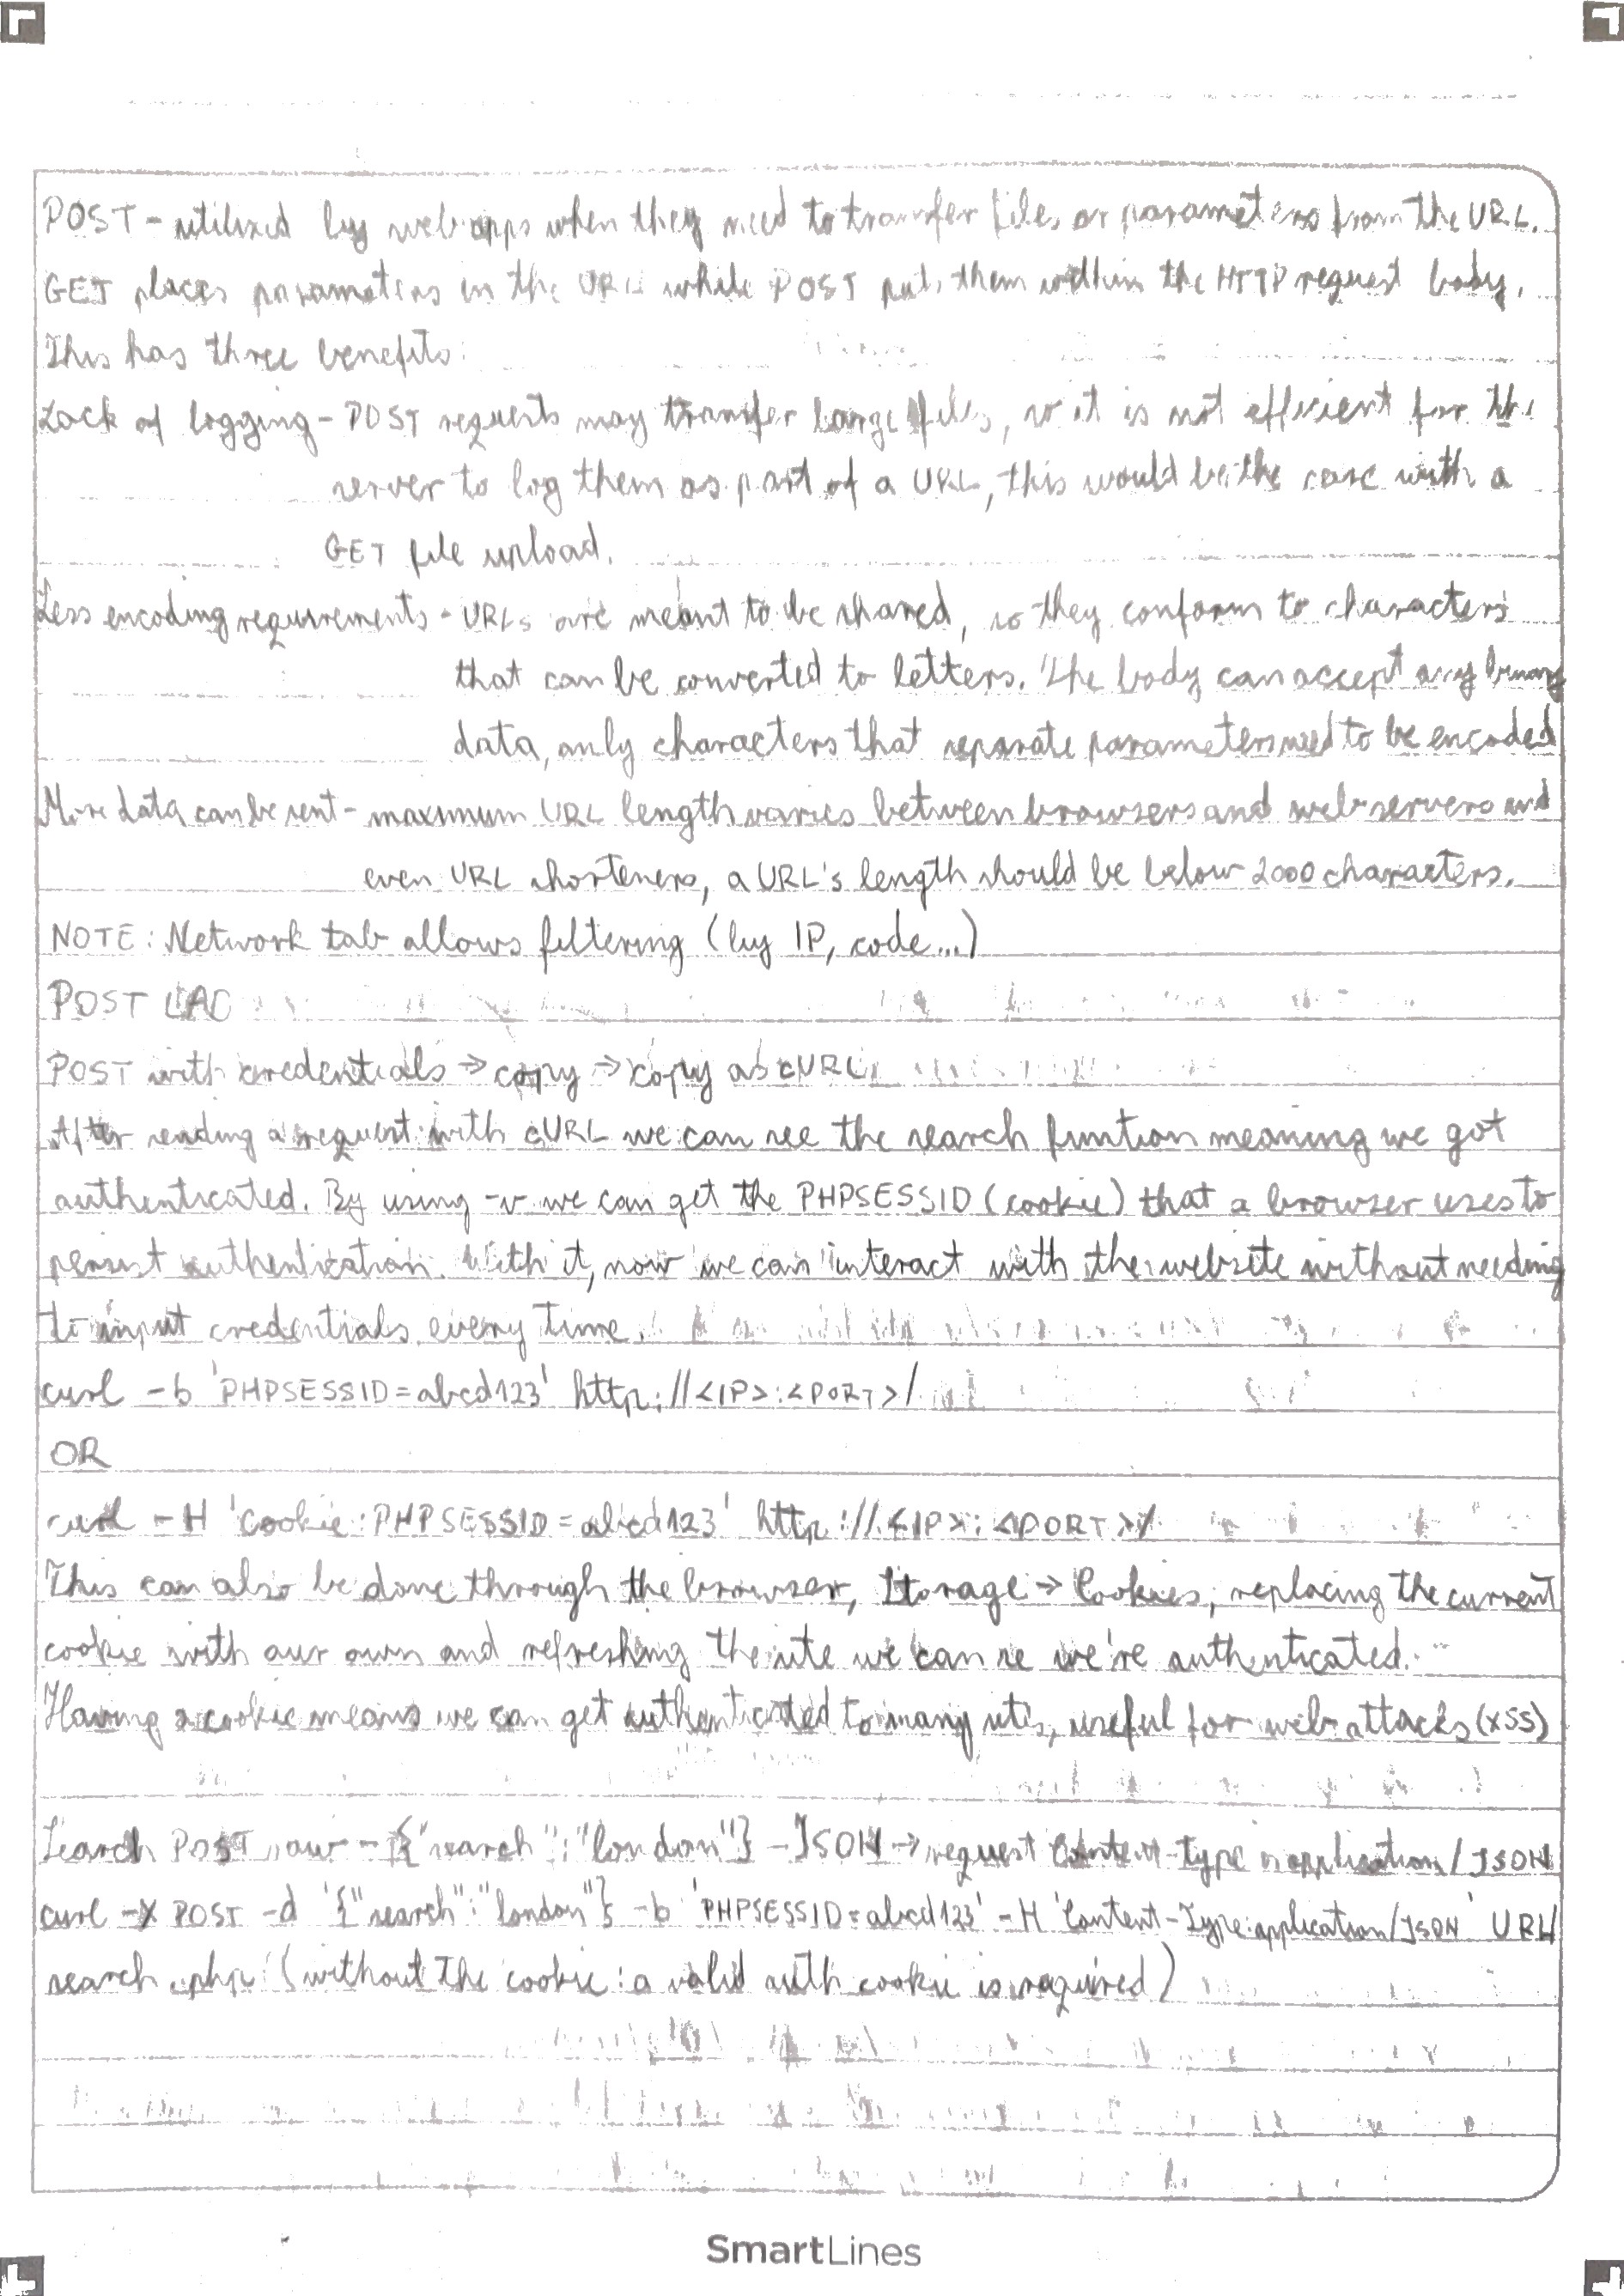 POST - utilized by web apps when they need to transfer files or parameters from the URL.
GET places parameters in the URL while POST puts them within the HTTP request body.
This has three benefits:
Lack of logging - POST requests may transfer large files, so it is not efficient for the
server to log them as part of a URL, this would be the case with a
GET file upload.
Less encoding requirements - URLs are meant to be shared, so they conform to characters
that can be converted to letters. The body can accept any binary
data, only characters that separate parameters need to be encoded
More data can be sent - maximum URL length varies between browsers and web servers and
even URL shorteners, a URL's length should be below 2000 characters.
NOTE: Network tab allows filtering (by IP, code...)
POST
POST with credentials → copy → copy as cURL
After sending a request with cURL we can see the search funtion meaning we got
authenticated. By using -v we can get the PHPSESSID (cookie) that a browser uses to
persist authentication. With it, now we can interact with the website without needing
to input credentials every time.
curl -b 'PHPSESSID=abcd123' http://<IP>:<PORT>/
OR
curl -H 'Cookie: PHPSESSID=abcd123' http://<IP>:<PORT>/
This can also be done through the browser, Storage → Cookies, replacing the current
cookie with our own and refreshing the site we can se we're authenticated.
Having a cookie means we can get authenticated to many sites, useful for web attacks (XSS)
Search POST raw - {"search":"london"} - JSON → request Content-type is application/JSON
curl -X POST -d '{"search":"london"} -b 'PHPSESSID=abcd123' -H 'Content-Type: application/JSON' URL/
search.php (without the cookie: a valid auth cookie is required)
SmartLines